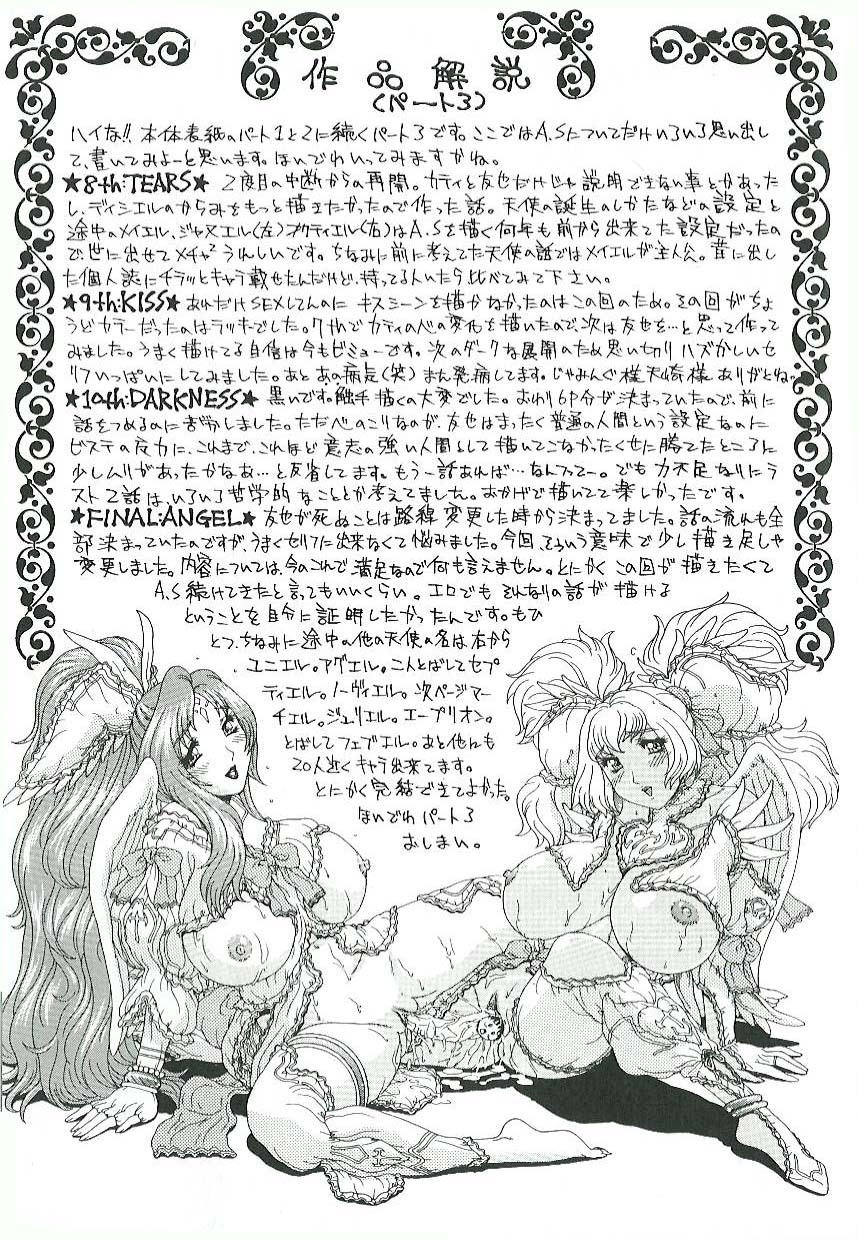 作品解説
(パート3)
ハイな!! 本体表紙のパート1と2に続くパート3です。ここではA.Sについてだけいろいろ思い出し
て、書いてみよーと思います。ほいでわいってみますかね。
★8th:TEARS★ 2度目の中断からの再開。カティと友也だけじゃ説明できない事とかあった
し、ディシエルのからみをもっと描きたかったので作った話。天使の誕生のしかたなどの設定と
途中のメイエル、ジャヌエル(左)オクティエル(右)はA.Sを描く何年も前から出来てた設定だったの
で、世に出せてメチャ²うれしいです。ちなみに前に考えてた天使の話ではメイエルが主人公。昔に出し
た個人誌にチラッとキャラ載せたんだけど、持ってる人いたら比べてみて下さい。
★9th:KISS★ あれだけSEXしてんのに キスシーンを描かなかったのはこの回のため。その回がちょ
うどカラーだったのはラッキでした。7thでカティの心の変化を描いたので、次は友也を…と思って作って
みました。うまく描けてる自信は今もビミューです。次のダークな展開のため思い切り ハズかしいセ
リフいっぱいにしてみました。あと あの病気(笑) まん発病してます。じゃみんぐ様 天崎様 ありがとねッ
★10th:DARKNESS★ 黒いです。触手 描くの大変でした。おわり6P分が決まっていたので、前に
話をつめるのに苦労しました。ただ心のこりなのが、友也はまったく普通の人間という設定なのに
ビステの反力に、これまで、これほど意志の強い人間として描いてこなかったくせに勝てたところに
少しムリがあったかなあ…と反省してます。もう一話あれば…なんつってー。でも力不足なりにラ
スト2話は、いろいろ哲学的なこととか考えてました。おかげで描いてて楽しかったです。
★FINAL:ANGEL★ 友也が死ぬことは路線変更した時から決まってました。話の流れも全
部決まっていたのですが、うまくセリフに出来なくて悩みました。今回、そういう意味で少し描き足しや
変更しました。内容については、今のこれで満足なので何も言えません。とにかくこの回が描きたくて
A.S続けてきたと言ってもいいくらい。エロでも それなりの話が描ける
ということを自分に証明したかったんです。もひ
とつ、ちなみに途中の他の天使の名は右から
ユニエル。アグエル。二人とばしてセプ
ティエル。ノーヴィエル。次ページマー
チエル。ジュリエル。エープリオン。
とばしてフェブエル。あと他にも
20人近くキャラ出来てます。
とにかく完結できてよかった。
ほいでわパート3
おしまい。